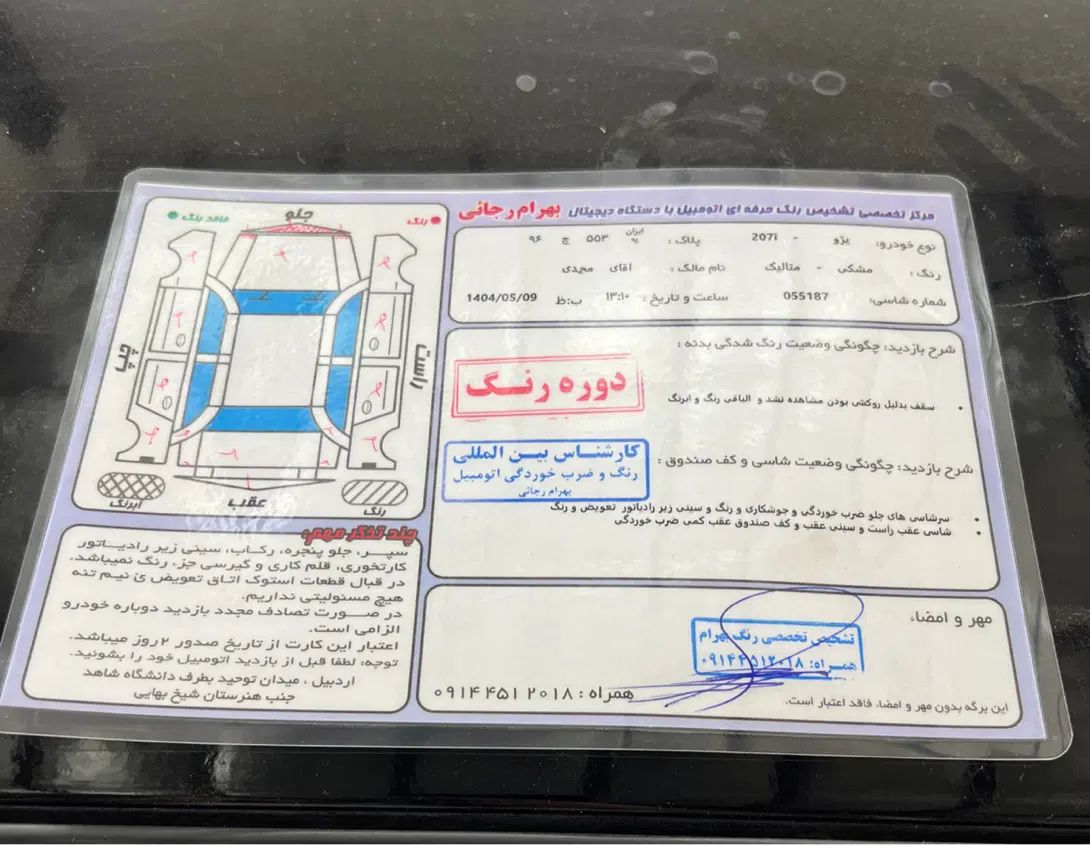 مرکز تخصصی تشخیص رنگ حرفه ای اتومبیل با دستگاه دیجیتال بهرام رجائی
نوع خودرو: پژو - 207i پلاک: ایران ۹۱ ۵۵۳ ج ۹۶
رنگ: مشکی - متالیک نام مالک: آقای مجدی
شماره شاسی: 055187 ساعت و تاریخ: ۱۳:۱۰ ب:ظ 1404/05/09
شرح بازدید: چگونگی وضعیت رنگ شدگی بدنه:
سقف بدلیل روکشی بودن مشاهده نشد و الباقی رنگ و ابرنگ
دوره رنگ
شرح بازدید: چگونگی وضعیت شاسی و کف صندوق:
کارشناس بین المللی
رنگ و ضرب خوردگی اتومبیل
بهرام رجائی
سرشاسی های جلو ضرب خوردگی و جوشکاری و رنگ و سینی زیر رادیاتور تعویض و رنگ
شاسی عقب راست و سینی عقب و کف صندوق عقب کمی ضرب خوردگی
مهر و امضاء:
تشخیص تخصصی رنگ بهرام
همراه: ۰۹۱۴۴۵۱۲۰۱۸
همراه: ۰۹۱۴ ۴۵۱ ۲۰۱۸
این برگه بدون مهر و امضاء فاقد اعتبار است.
رنگ
جلو
فاقد رنگ
راست
چپ
عقب
رنگ
ابرنگ
چند تذکر مهم:
سپر، جلو پنجره، رکاب، سینی زیر رادیاتور
کارتخوری، قلم کاری و گیرسی جزء رنگ نمیباشد.
در قبال قطعات استوک اتاق تعویض ی نیم تنه
هیچ مسئولیتی نداریم.
در صورت تصادف مجدد بازدید دوباره خودرو
الزامی است.
اعتبار این کارت از تاریخ صدور ۲ روز میباشد.
توجه: لطفا قبل از بازدید اتومبیل خود را بشوئید.
اردبیل، میدان توحید بطرف دانشگاه شاهد
جنب هنرستان شیخ بهایی